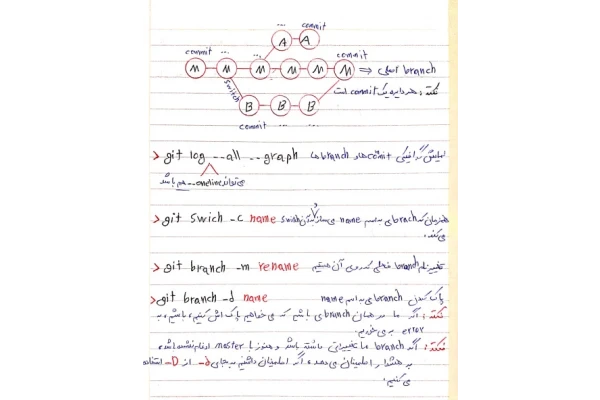 ... commit
A A
commit ... ... commit
M M M M M M ⇒ branch اصلی
switch
نکته : هر دایره یک commit است
B B B
commit ... ...
> git log --all --graph نمایش گرافیکی commit ها و branch ها
می‌تواند --oneline هم باشد
> git swich -c name همزمان که branch ی به اسم name می‌سازد و به آن swich
می‌کند.
> git branch -m rename تغییر نام branch فعلی که روی آن هستیم
> git branch -d name پاک کردن branch ی به اسم name
نکته : اگر ما در همان branch ی باشیم که می خواهیم پاک اش کنیم، باشیم، به
error بر می‌خوریم.
نکته : اگر branch ما تغییراتی داشته باشد و هنوز با master ادغام نشده باشد،
به هشدار اطمینان می دهد، اگر اطمینان داشتیم به جای -d از -D استفاده
می کنیم.